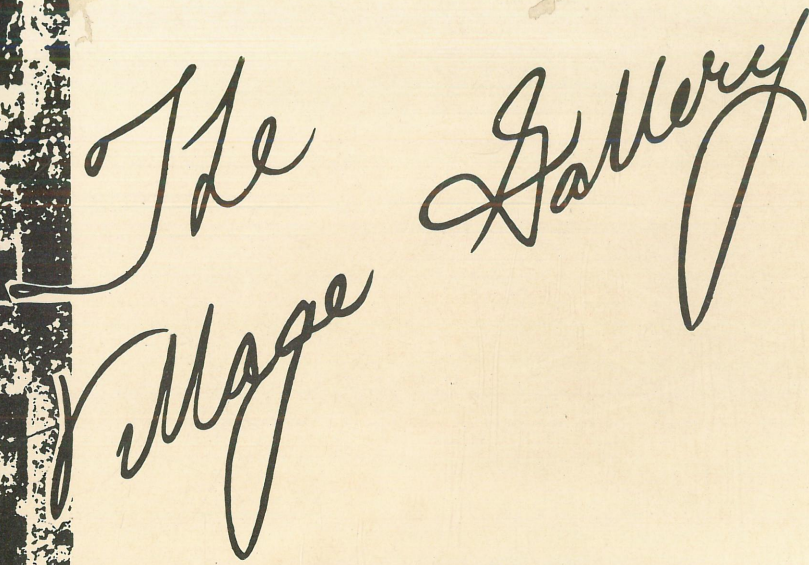 The
Village
Gallery